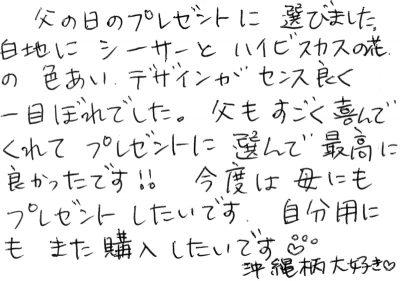 父の日のプレゼントに 選びました。
白地に シーサーと ハイビスカスの花
の 色あい、デザインが センス良く
一目ぼれでした。父もすごく喜んで
くれて プレゼントに 選んで 最高に
良かったです!! 今度は 母にも
プレゼント したいです。自分用に
も また 購入 したいです
沖縄柄大好き♡